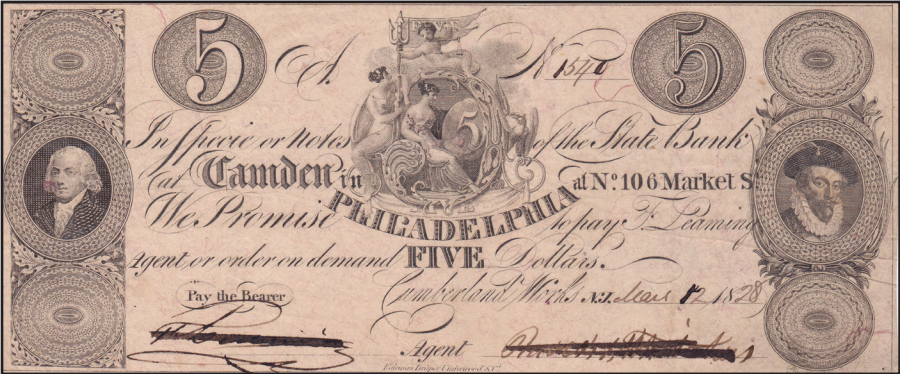 5 A. No 1540 5
5
In Specie or Notes of the State Bank
at Camden in PHILADELPHIA at No. 106 Market St
We Promise to pay F. Leaming
Agent or order on demand FIVE Dollars.
Cumberland Works N.J. Mar 12 1828
Pay the Bearer
Agent
Fairman Draper Underwood & Co.